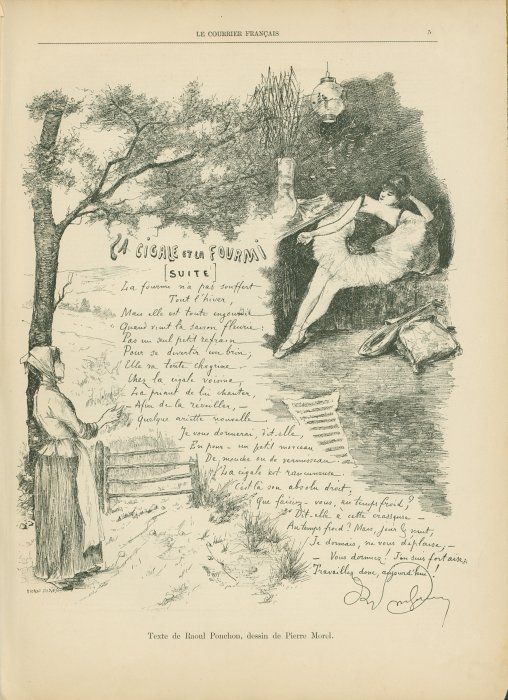 LE COURRIER FRANÇAIS
5
LA CIGALE ET LA FOURMI
[SUITE]
La fourmi n'a pas souffert
Tout l'hiver,
Mais elle est toute engourdie
Quand vint la saison fleurie:
Pas un seul petit refrain
Pour se divertir un brin,
Elle va toute chagrine
Chez la cigale voisine,
La priant de lui chanter,
– Afin de la réveiller, –
Quelque ariette nouvelle.
Je vous donnerai, dit-elle,
En pour – un petit morceau
De mouche ou de vermisseau
La cigale est rancuneuse
C'est là son absolu droit,
Que faisiez-vous, au temps froid?
Dit-elle à cette crasseuse
Au temps froid? Mais, jour & nuit,
Je dormais, ne vous déplaise,
– Vous dormiez! J'en suis fort aise,
Travaillez donc, aujourd'hui!
Texte de Raoul Ponchon, dessin de Pierre Morel.